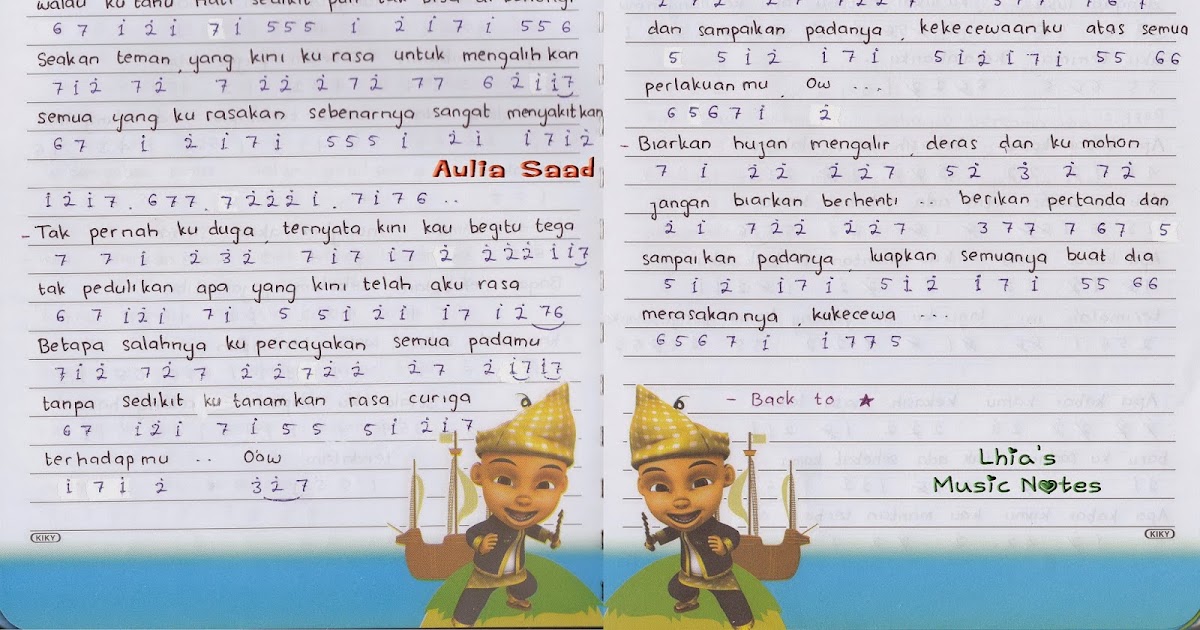 walau ku tahu Hati sedikit pun tak bisa
6 7 1̇ 1̇ 2̇ 1̇ 7 1̇ 5 5 5 1̇ 2̇ 1̇ 7 1̇ 5 5 6
Seakan teman, yang kini ku rasa untuk mengalihkan
7 1̇ 2̇ 7 2̇ 7 2̇ 2̇ 2̇ 7 2̇ 7 7 6 2̇ 1̇ 1̇ 7
semua yang ku rasakan sebenarnya sangat menyakitkan
6 7 1̇ 2̇ 1̇ 7 1̇ 5 5 5 1̇ 2̇ 1̇ 1̇ 7 1̇ 2̇
Aulia Saad
1̇ 2̇ 1̇ 7 . 6 7 7 . 7 2̇ 2̇ 2̇ 1̇ . 7 1̇ 7 6 ..
- Tak pernah ku duga, ternyata kini kau begitu tega
7 7 1̇ 2̇ 3̇ 2̇ 7 1̇ 7 1̇ 7 2̇ 2̇ 2̇ 2̇ 1̇ 1̇ 7
tak pedulikan apa yang kini telah aku rasa
6 7 1̇ 2̇ 1̇ 7 1̇ 5 5 1̇ 2̇ 1̇ 1̇ 7 1̇ 2̇ 7 6
Betapa salahnya ku percayakan semua padamu
7 1̇ 2̇ 7 2̇ 7 2̇ 2̇ 7 2̇ 2̇ 2̇ 7 2̇ 1̇ 7 1̇ 7
tanpa sedikit ku tanamkan rasa curiga
6 7 1̇ 2̇ 1̇ 7 1̇ 5 5 5 1̇ 2̇ 1̇ 7
terhadapmu .. Oow
1̇ 7 1̇ 2̇ 3̇ 2̇ 7
KIKY
dan sampaikan padanya, kekecewaanku atas semua
5 5 1̇ 2̇ 1̇ 7 1̇ 5 1̇ 2̇ 1̇ 7 1̇ 5 5 6 6
perlakuanmu, Ow ...
6 5 6 7 1̇ 2̇
- Biarkan hujan mengalir, deras dan ku mohon
7 1̇ 2̇ 2̇ 2̇ 2̇ 7 5 2̇ 3̇ 2̇ 7 2̇
jangan biarkan berhenti ... berikan pertanda dan
2̇ 1̇ 7 2̇ 2̇ 2̇ 2̇ 7 3 7 7 7 6 7 5
sampaikan padanya, luapkan semuanya buat dia
5 1̇ 2̇ 1̇ 7 1̇ 5 1̇ 2̇ 1̇ 7 1̇ 5 5 6 6
merasakannya, kukecewa ...
6 5 6 7 1̇ 1̇ 7 7 5
- Back to ★
Lhia's
Music Notes
KIKY